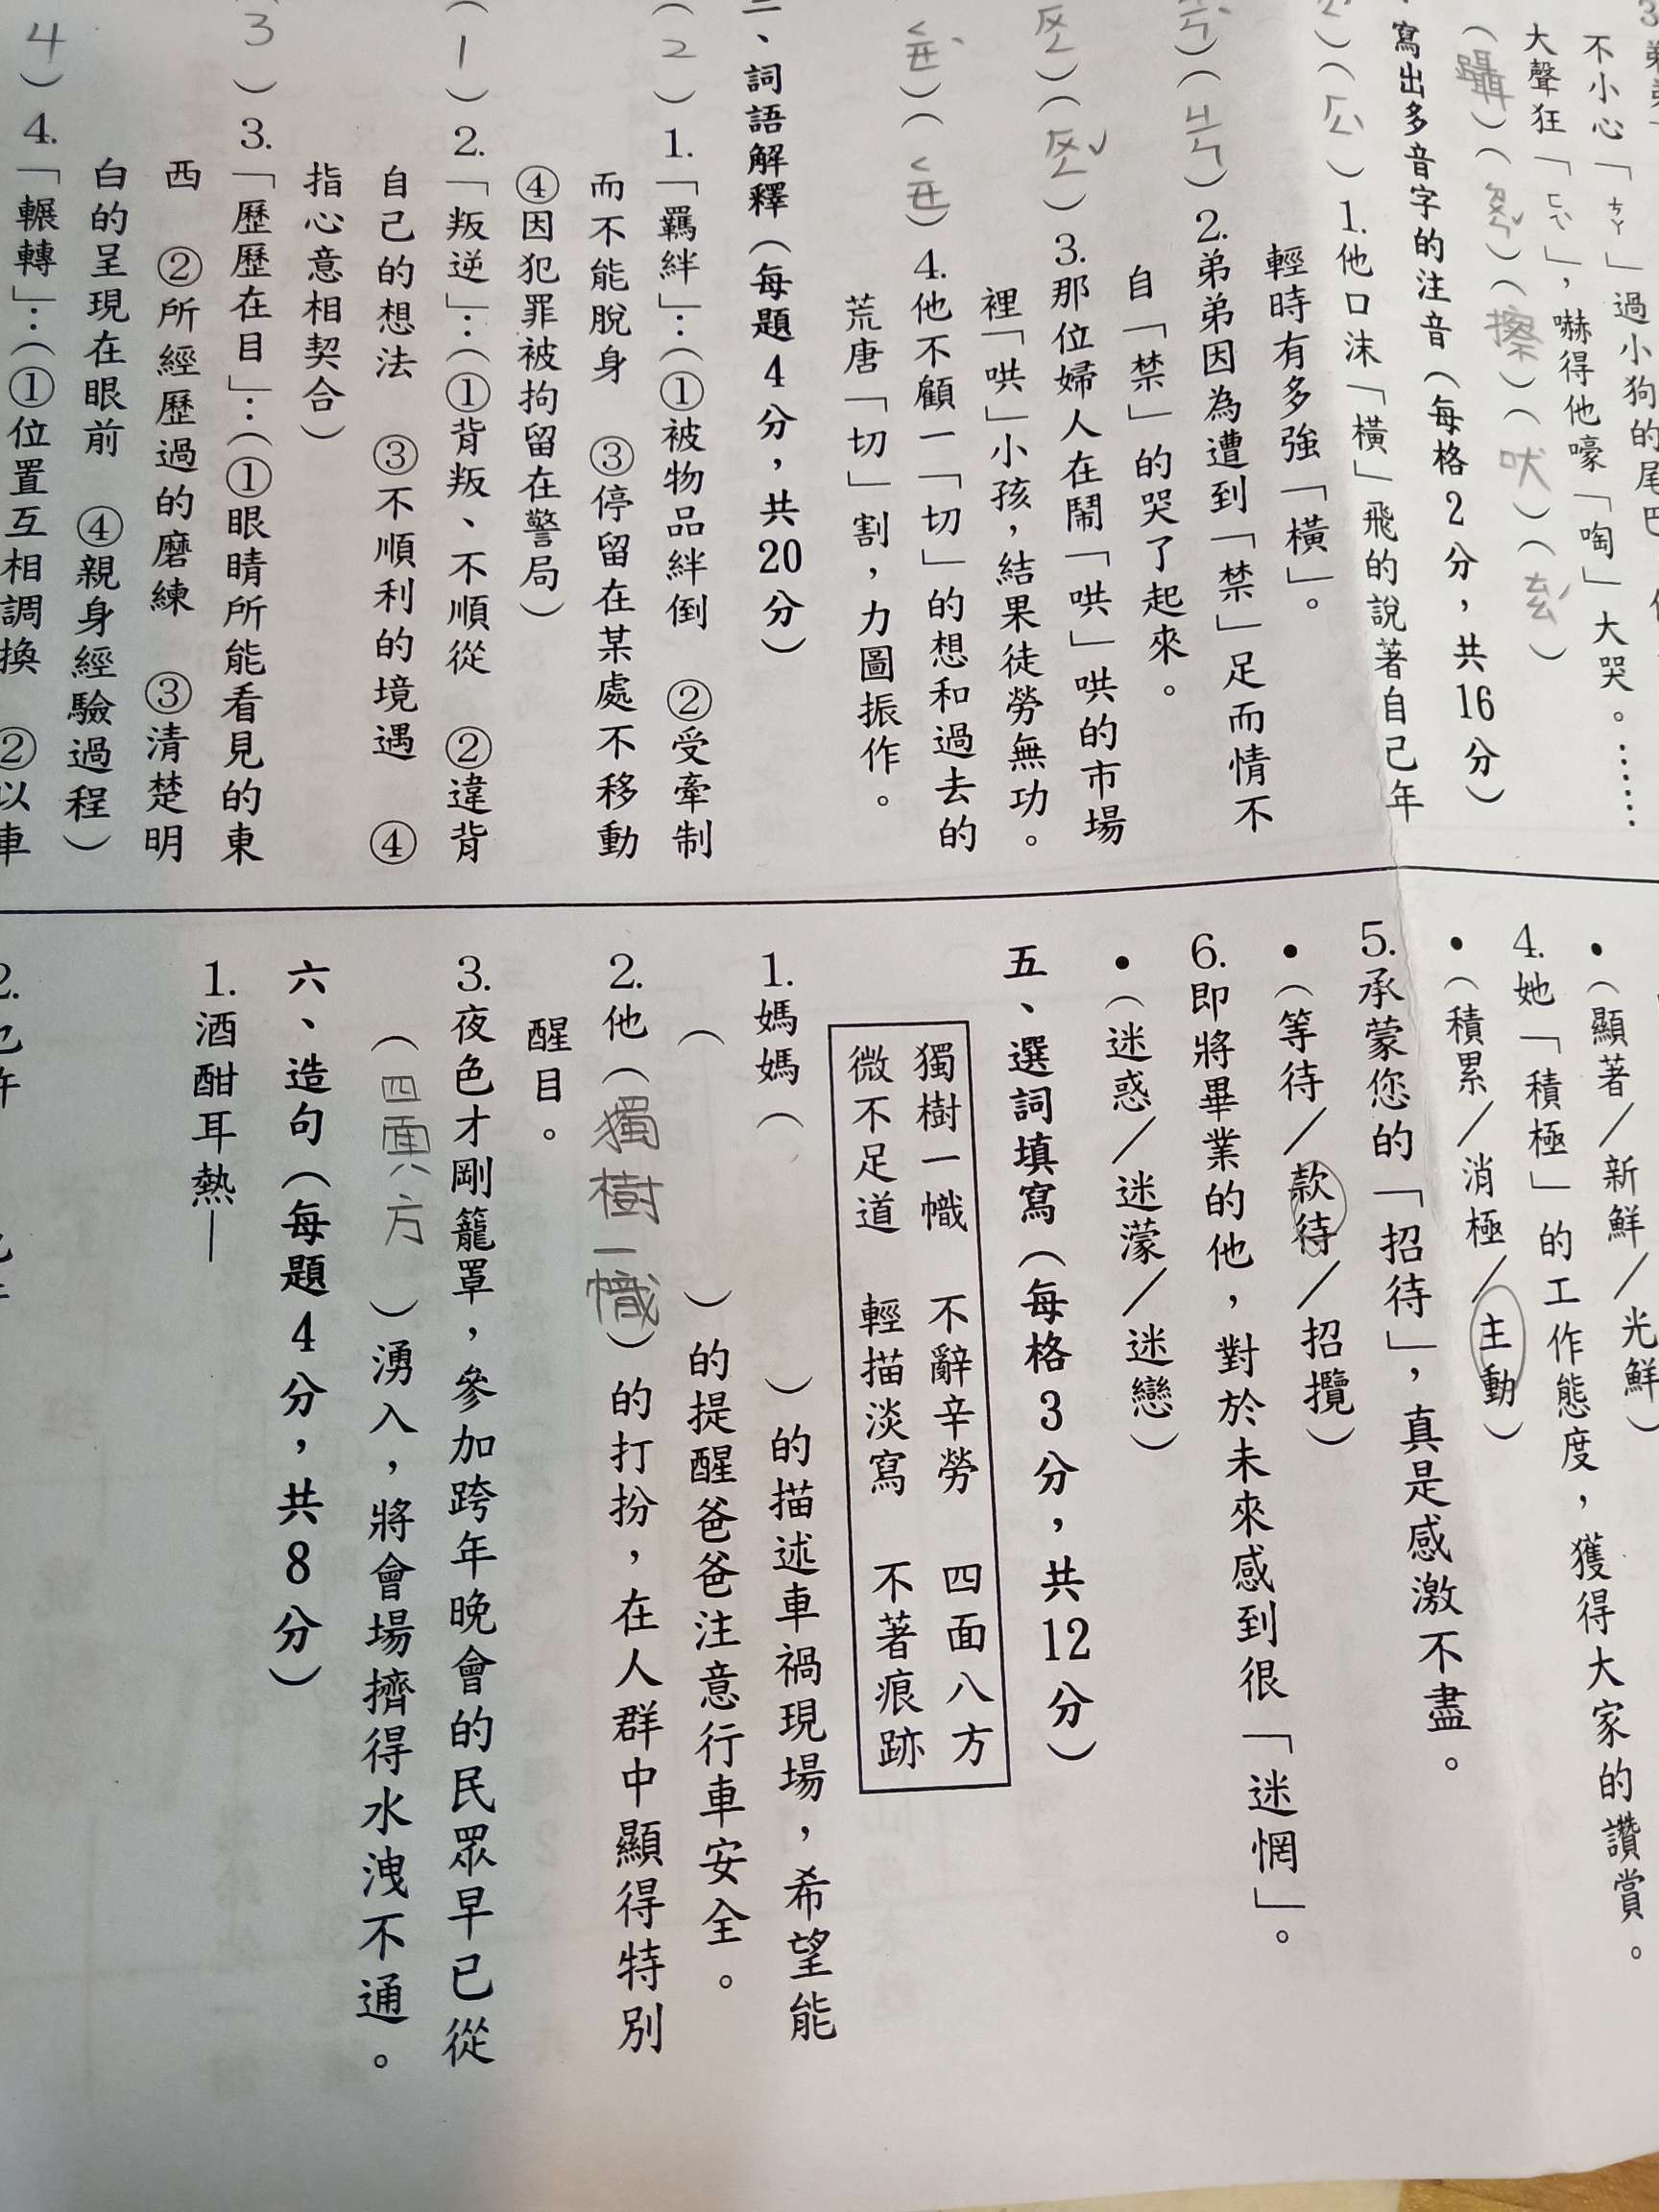 不小心「ㄘㄞ」過小狗的尾巴
大聲狂「ㄈㄟˋ」,嚇得他嚎「啕」大哭。……
(躡)( )(擦)(吠)( )
寫出多音字的注音(每格2分,共16分)
( )(ㄥ)1.他口沫「橫」飛的說著自己年
輕時有多強「橫」。
( )(ㄐㄧㄣ)2.弟弟因為遭到「禁」足而情不
自「禁」的哭了起來。
( )( )3.那位婦人在鬧「哄」哄的市場
裡「哄」小孩,結果徒勞無功。
(ㄑㄧㄝˋ)(ㄑㄧㄝ)4.他不顧一「切」的想和過去的
荒唐「切」割,力圖振作。
、詞語解釋(每題4分,共20分)
(2)1.「羈絆」:(①被物品絆倒 ②受牽制
而不能脫身 ③停留在某處不移動
④因犯罪被拘留在警局)
(1)2.「叛逆」:(①背叛、不順從 ②違背
自己的想法 ③不順利的境遇 ④
指心意相契合)
(3)3.「歷歷在目」:(①眼睛所能看見的東
西 ②所經歷過的磨練 ③清楚明
白的呈現在眼前 ④親身經驗過程)
4)4.「輾轉」:(①位置互相調換 ②以車
•(顯著/新鮮/光鮮)
4.她「積極」的工作態度,獲得大家的讚賞。
•(積累/消極/主動)
5.承蒙您的「招待」,真是感激不盡。
•(等待/款待/招攬)
6.即將畢業的他,對於未來感到很「迷惘」。
•(迷惑/迷濛/迷戀)
五、選詞填寫(每格3分,共12分)
獨樹一幟 不辭辛勞 四面八方
微不足道 輕描淡寫 不著痕跡
1.媽媽( )的描述車禍現場,希望能
( )的提醒爸爸注意行車安全。
2.他(獨樹一幟)的打扮,在人群中顯得特別
醒目。
3.夜色才剛籠罩,參加跨年晚會的民眾早已從
(四面八方)湧入,將會場擠得水洩不通。
六、造句(每題4分,共8分)
1.酒酣耳熱—
2.